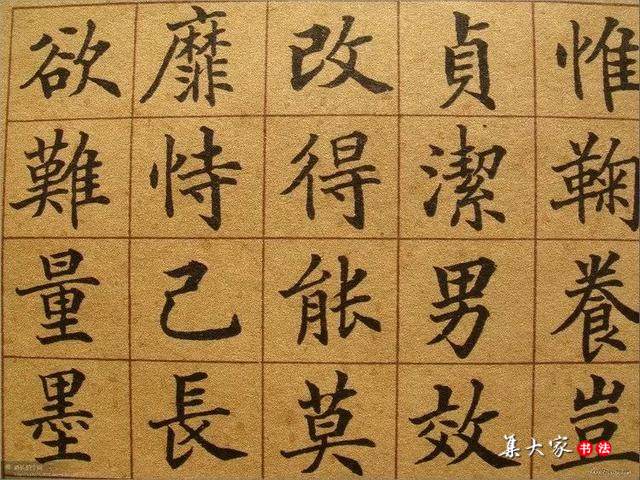 惟鞠養豈
貞潔男效
改得能莫
靡恃己長
欲難量墨
集大家书法